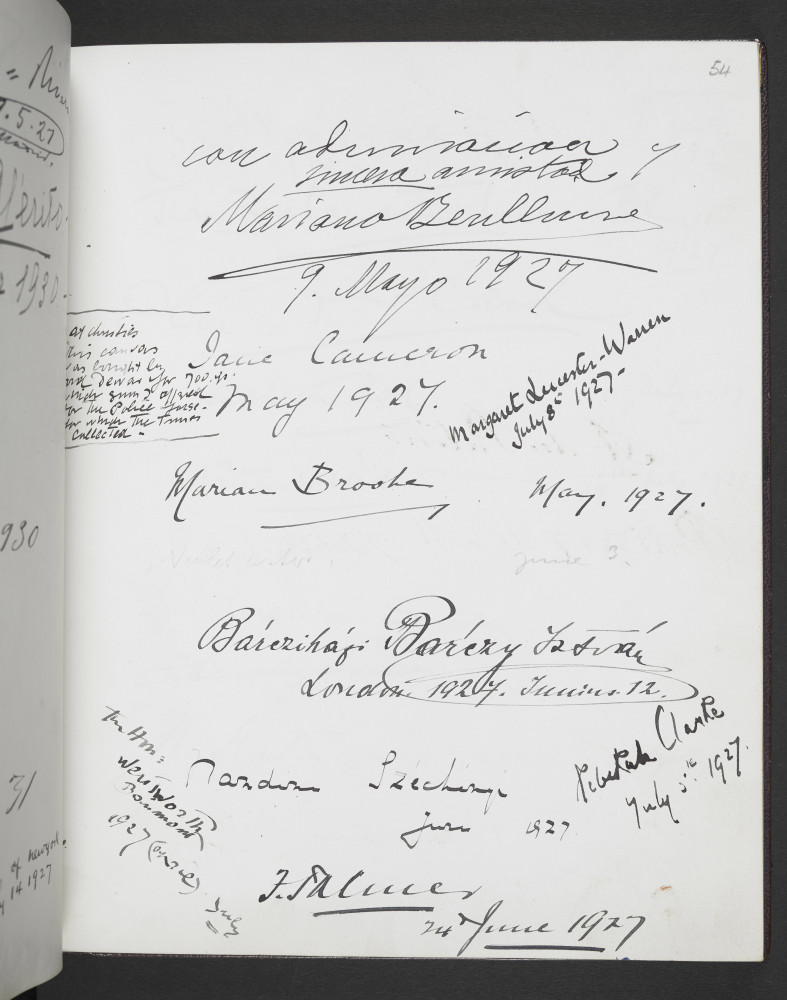 54
con admiracion y
sincera amistad
Mariano Benlliure
9. Mayo 1927
at christies
this canvas
was bought by
Lord Dewar for 700 gs.
which sum I offered
for the Police
for which the Times
collected.
Jane Cameron
May 1927.
Margaret Leicester-Warren
July 8th 1927-
Marian Brooke May. 1927.
June 3.
Bárcziházi Bárczy István
London 1927. Junius 12.
The Hon:
Wentworth
Beaumont
1927
July
Széchenyi
June 1927
Rebekah Clarke
July 1927.
24th June 1927
9.5.27
1930.
930
31
of newyork.
14 1927